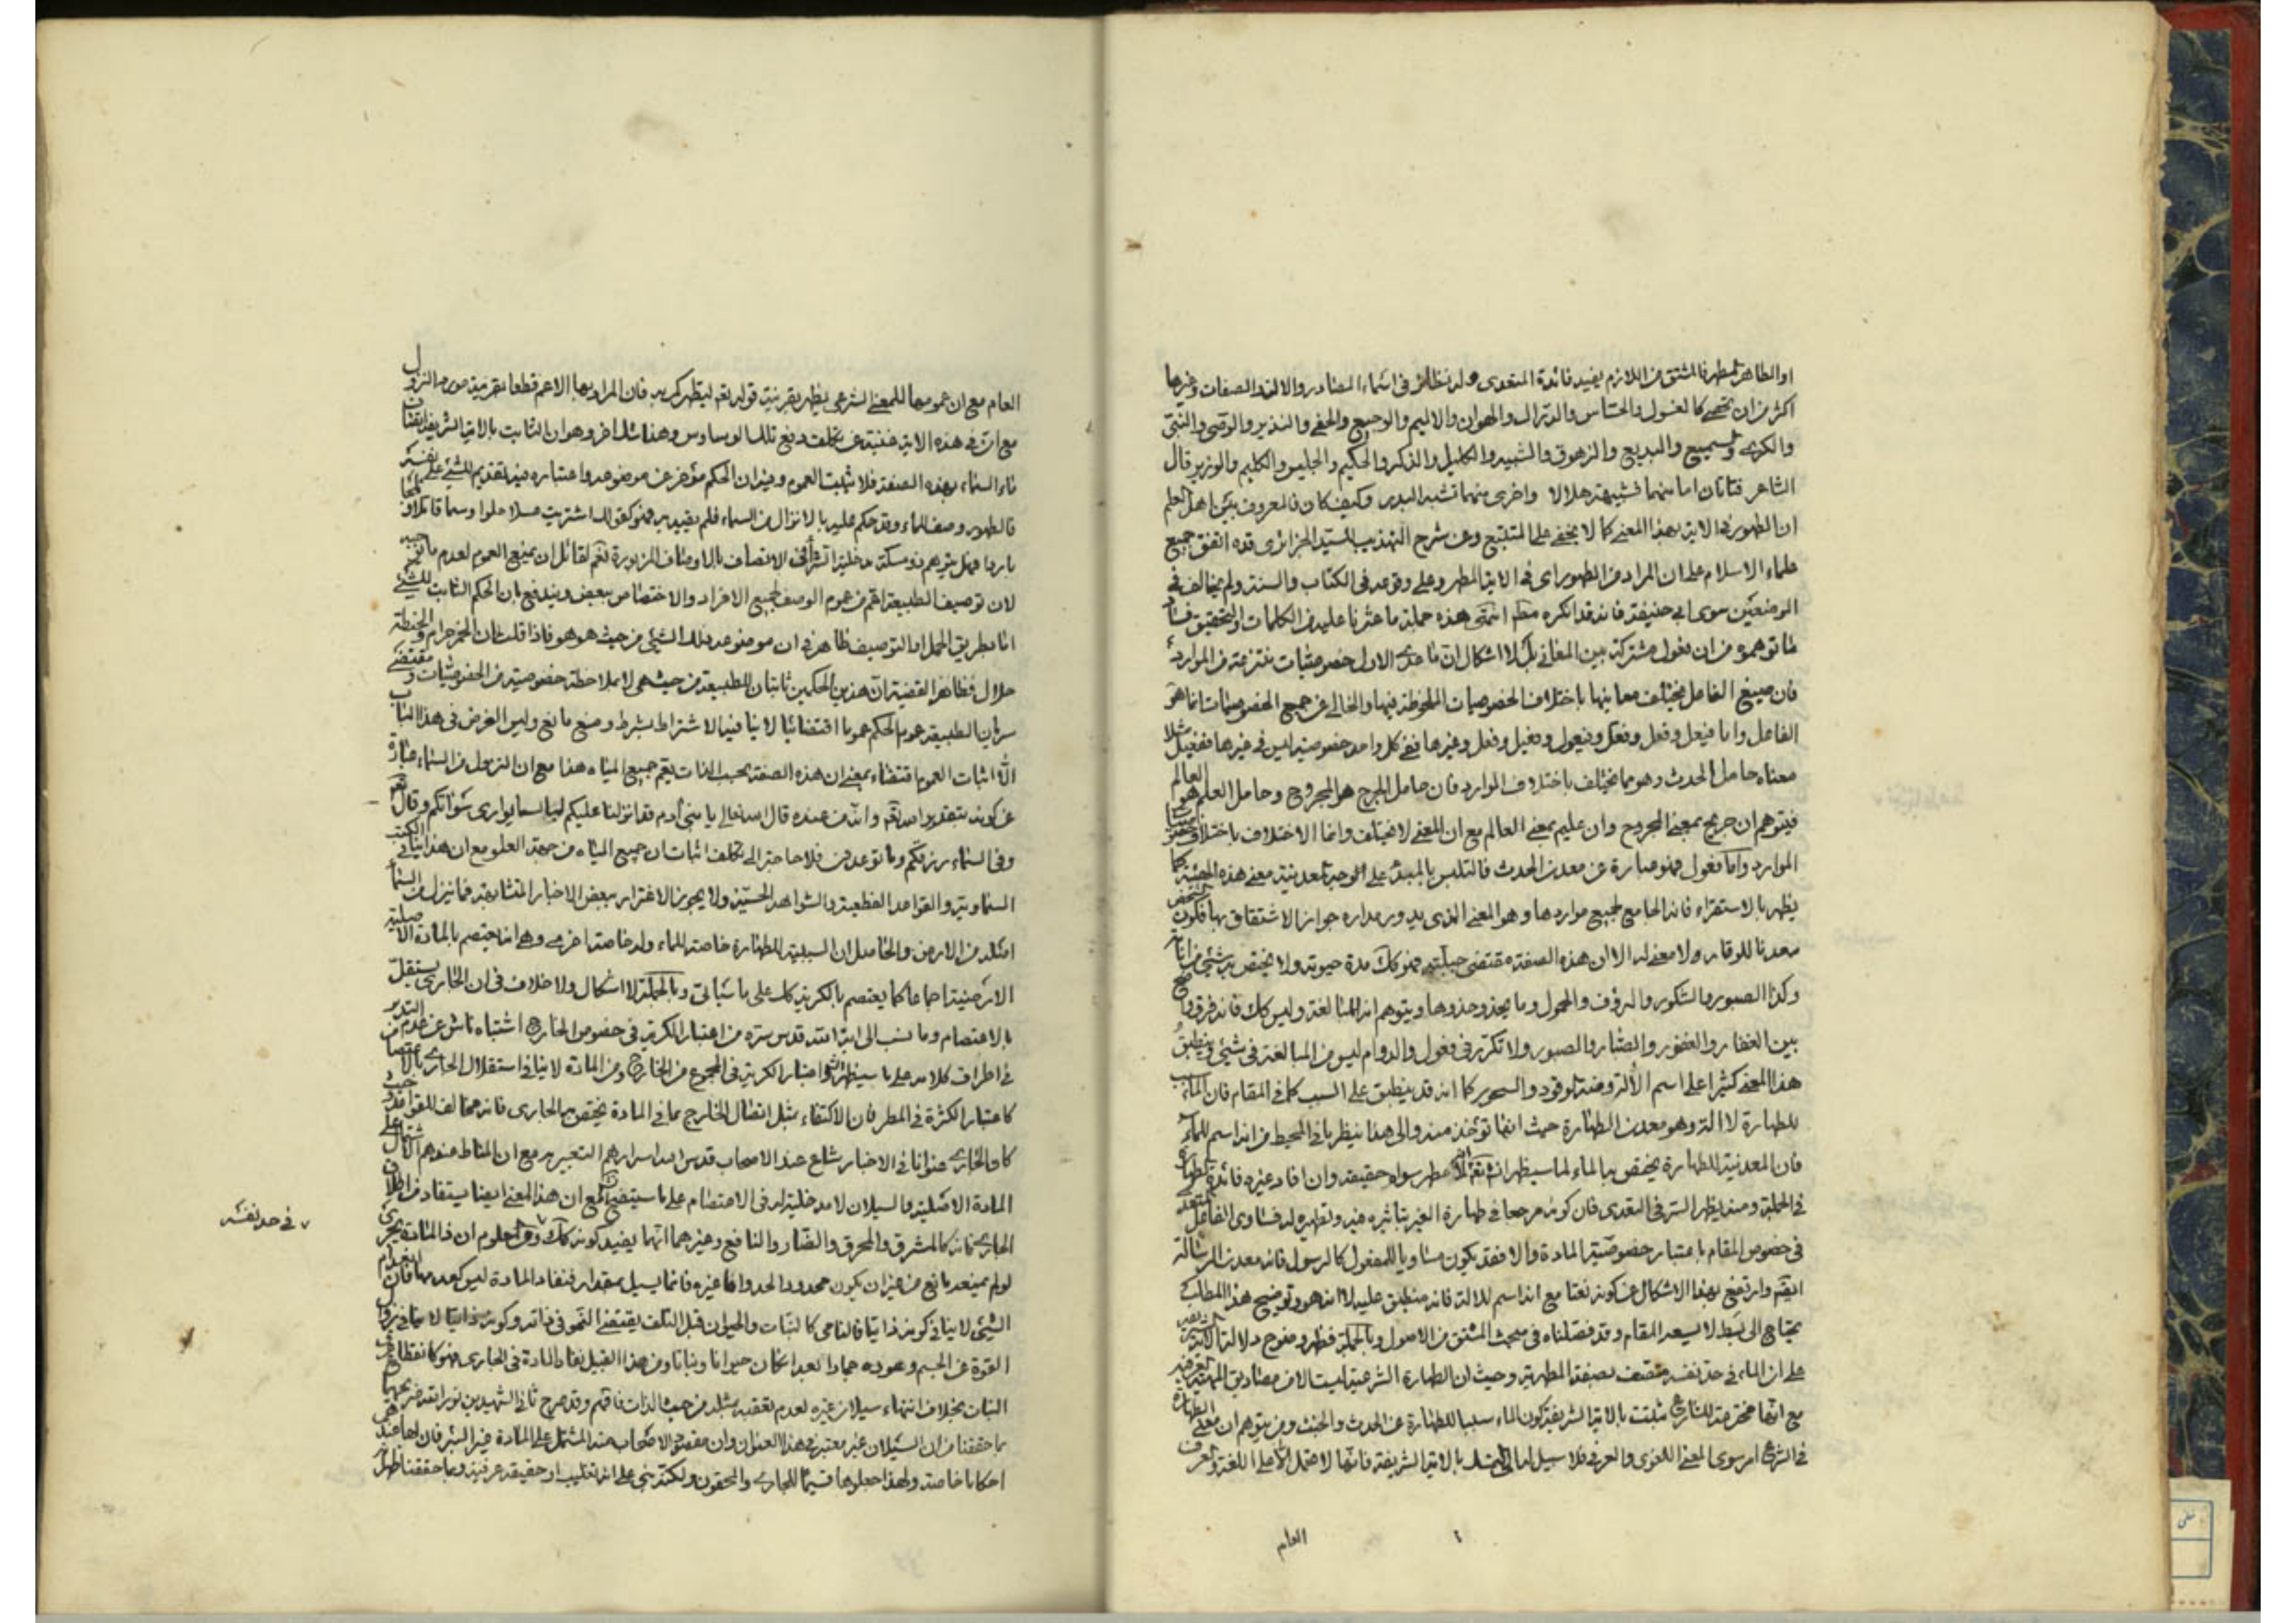 او الطاهر المطهر فالمشتق من اللازم يفيد فائدة المتعدى وله نظائر فى اسماء المصادر والالة والصفات وغيرها
اكثر من ان تحصى كالغسول والحساس والدراك والهوان والاليم والوجيع والخفى والنذير والوصى والنبى
والكرى والسميع والبديع والزهوق والشهيد والكليل والذكر والحكيم والجليس والكليم والوزير قال
الشاعر فتاتان اما منهما فشبيهة هلالا واخرى منهما تشبه البدر وكيف كان فالمعروف بين اهل العلم
ان الطهور فى الاية بهذا المعنى كما لا يخفى على المتتبع وعن شرح التهذيب للسيد الجزائرى قده اتفق جميع
علماء الاسلام على ان المراد من الطهور اى فى الاية المطهر وعلى وقوعه فى الكتاب والسنة ولم يخالف فى
الوضعين سوى ابى حنيفة فانه قد انكره انتهى هذه جملة ما عثرنا عليه من الكلمات والتحقيق فساد
ما توهموه من ان فعول مشتركة بين المعانى بل لا اشكال ان ما عدى الاول خصوصيات منتزعة من الموارد
فان صيغ الفاعل يختلف معانيها باختلاف الخصوصيات الملحوظة فيها والخالى عن جميع الخصوصيات انما هو
الفاعل واما فيعل وفعل وفعل وفيعول وفعيل وفعل وغيرها ففى كل واحد خصوصية ليس فى غيرها ففعيل مثلا
معناه حامل الحدث وهو مما يختلف باختلاف الموارد فان حامل الجرح هو المجروح وحامل العلم هو العالم
فيتوهم ان جريح بمعنى المجروح وان عليم بمعنى العالم مع ان المعنى لا يختلف وانما الاختلاف باختلاف
الموارد واما فعول فهو عبارة عن معدن الحدث فالتلبس بالمبدء على وجه المعدنية معنى هذه الهيئة كما
يظهر بالاستقراء فانه الجامع لجميع مواردها وهو المعنى الذى يدور مداره جواز الاشتقاق بها فكون
معدنا للوقار ولا معنى له الا ان هذه الصفة مقتضى جبلته فهو كك مدة حيوته ولا يختص بشئ من
وكذا الصبور والشكور والرؤف والحمول وما يحذو حذوها ويتوهم انه للمبالغة وليس كك فانه فرق
بين الغفار والغفور والصبار والصبور ولا تكرر فى فعول والدوام ليس من المبالغة فى شئ وينطبق
هذا المعنى كثيرا على اسم الألة ومنه الوقود والسحور كما انه قد ينطبق على السبب كما فى المقام فان الماء سبب
للطهارة لا الة وهو معدن الطهارة حيث انها تؤخذ منه والى هذا ينظر ما فى المحيط من انه اسم للماء
فان المعدنية للطهارة يختص بها الماء لما سيظهر انه لا مطهر سواه حقيقة وان افاد غيره فائدة
فى الجملة ومنه يظهر السر فى التعدى فان كونه مرجعا فى طهارة الغير بتاثيره فيه وتطهيره له فساوى الفاعل
فى خصوص المقام باعتبار خصوصية المادة والا فقد يكون مساويا للمفعول كالرسول فانه معدن الرسالة
وارتفع بهذا الاشكال عن كونه نعتا مع انه اسم للالة فانه منطبق عليه لا انه هو وتوضيح هذا المطلب
يحتاج الى بسط لا يسعه المقام وقد فصلناه فى مبحث المشتق من الاصول وبالجملة فظهر وضوح دلالة الاية
على ان الماء فى حد نفسه متصف بصفة المطهرية وحيث ان الطهارة الشرعية ليست الا من مصاديق
مع انها مخترعة للشارع ثبتت بالاية الشريفة كون الماء سببا للطهارة عن الحدث والخبث ومن يتوهم ان معنى الطهارة
فى الشرع امر سوى المعنى اللغوى والعرفى فلا سبيل له الى التمسك بالاية الشريفة فانها لا تحمل الا على اللغة والعرف
العام
العام مع ان عمومها للمعنى الشرعى يظهر بقرينة قوله تعالى ليطهركم به فان المراد بها الاعم قطعا بقرينة مورد النزول
مع ان فى هذه الاية غنية عن تكلف دفع تلك الوساوس وهذا شك اخر وهو ان الثابت بالاية الشريفة
ماء السماء بهذه الصفة فلا يثبت العموم وفيه ان الحكم مؤخر عن موضوعه واعتباره فيه تقديم للشئ على نفسه
فالطهور وصف للماء وقد حكم عليه بالانزال من السماء فلم يقيد به فهو كقولك اشتريت عسلا حلوا وسما قاتلا
باردا فهل يتوهم ذو مسكة مدخلية الشراء فى الاتصاف بالاوصاف المزبورة نعم لقائل ان يمنع العموم لعدم
لان توصيف الطبيعة اعم من عموم الوصف لجميع الافراد والاختصاص ببعض ويندفع بان الحكم الثابت للشئ
اما بطريق الحمل او التوصيف ظاهر فى ان موضوعه ذلك الشئ من حيث هو هو فاذا قلت ان الخمر حرام والحنطة
حلال فظاهر القضية ان هذين الحكمين ثابتان للطبيعة من حيث هى لا بملاحظة خصوصية من الخصوصيات ومقتضى
سريان الطبيعة عموم الحكم عموما اقتضائيا لا ينافيه الاشتراط بشرط ومنع مانع وليس الغرض فى هذا الباب
الا اثبات العموم اقتضاء بمعنى ان هذه الصفة بحسب الذات يعم جميع المياه هذا مع ان النزول من السماء عبارة
عن كونه بتقدير الله تعالى وانه من عنده قال الله تعالى يا بنى آدم قد انزلنا عليكم لباسا يوارى سواتكم وقال
وفى السماء رزقكم وما توعدون فلا حاجة الى تكلف اثبات ان جميع المياه من جهة العلو مع ان هذا ينافى الكتب
السماوية والقواعد القطعية والشواهد الحسية ولا يجوز الاغترار ببعض الاخبار المتشابهة فما ينزل من السماء
اصله من الارض والحاصل ان السببية للطهارة خاصة للماء وله خاصة اخرى وهى انه يعتصم بالمادة الاصلية
الارضية اجماعا كما يعتصم بالكرية كك على ما سياتى وبالجملة لا اشكال ولا خلاف فى ان الجارى يستقل
بالاعتصام وما نسب الى اية الله قدس سره من اعتبار الكرية فى خصوص الخارج اشتباه ناش عن عدم التدبر
فى اطراف كلامه على ما سيظهر واعتبار الكرية فى المجموع من الخارج ومن المادة لا ينافى استقلال الجارى بالاعتصام
كاعتبار الكثرة فى المطر فان الاكتفاء بمثل اتصال الخارج بما فى المادة يختص بها الجارى فانه مخالف للقواعد
كما والجارى عنوانا فى الاخبار شاع عند الاصحاب قدس الله اسرارهم التعبير به مع ان المناط عندهم الاشتمال على
المادة الاصلية والسيلان لا مدخلية له فى الاعتصام على ما سيتضح مع ان هذا المعنى ايضا يستفاد من اطلاق
الجارى فانه كالمشرق والمحرق والضار والنافع وغيرهما انما يفيد كونه كك ومن المعلوم ان ذا المادة يجرى
في حد نفسه
لو لم يمنعه مانع من غير ان يكون محدودا بحد واما غيره فانما يسيل بمقداره فنفاد المادة ليس كعدمها فان انعدام
الشئ لا ينافى كونه ذاتيا فالنامى كالنبات والحيوان قبل التلف يقتضى النمو فى ذاته وكونه ذاتيا لا ينافى زوال
القوة عن الجسم وعوده جمادا بعد ان كان حيوانا ونباتا ومن هذا القبيل نفاد المادة فى الجارى فهو كانقطاع
النبات بخلاف انتهاء سيلان غيره لعدم تعقبه بمثله من حيث الذات فافهم وقد صرح ثانى الشهيدين نور الله ضريحهما
بما حققنا من ان السيلان غير معتبر فى هذا العنوان وان مقصود الاصحاب منه المشتمل على المادة غير البئر فان لها عندهم
احكاما خاصة ولهذا جعلوها قسيما للجارى والمحقون ولكنه بنى على انه تغليب او حقيقة عرفية وبما حققنا ظهر